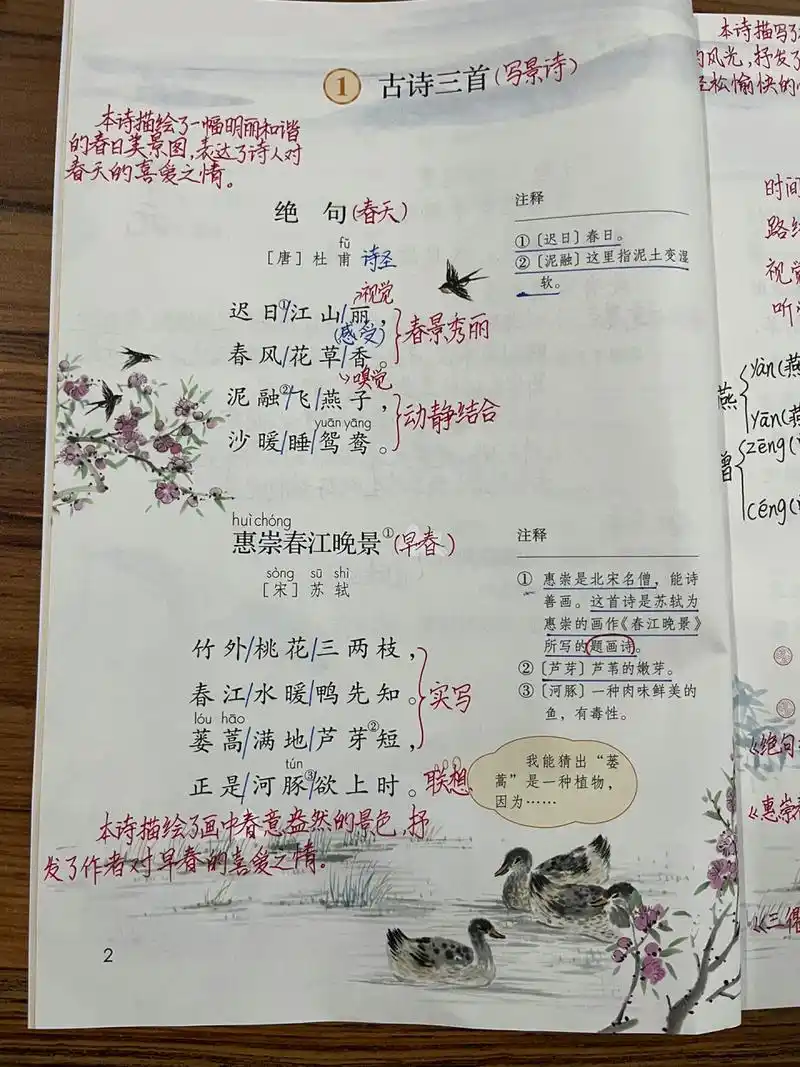 1 古诗三首(写景诗)
本诗描绘了一幅明丽和谐
的春日美景图,表达了诗人对
春天的喜爱之情。
绝句(春天)
fǔ
[唐]杜甫 诗圣
视觉
迟日①/江山/丽,
(感受)
春风/花草/香。
嗅觉
春景秀丽
泥融②/飞/燕子,
yuān yāng
沙暖/睡/鸳鸯。
动静结合
注释
①〔迟日〕春日。
②〔泥融〕这里指泥土变湿
软。
huì chóng
惠崇春江晚景①(早春)
sòng sū shì
[宋]苏轼
竹外/桃花/三两枝,
春江/水暖/鸭先知。
实写
lóu hāo
蒌蒿/满地/芦芽②短,
tún
正是/河豚③/欲上时。联想
注释
① 惠崇是北宋名僧,能诗
善画。这首诗是苏轼为
惠崇的画作《春江晚景》
所写的题画诗。
②〔芦芽〕芦苇的嫩芽。
③〔河豚〕一种肉味鲜美的
鱼,有毒性。
我能猜出“蒌
蒿”是一种植物,
因为……
本诗描绘了画中春意盎然的景色,抒
发了作者对早春的喜爱之情。
2
本诗描写了
的风光,抒发了
轻松愉快的
时间
路线
视觉
听
燕
yàn(燕
yān(燕
曾
zēng(
céng(
《绝句
《惠崇
《三衢